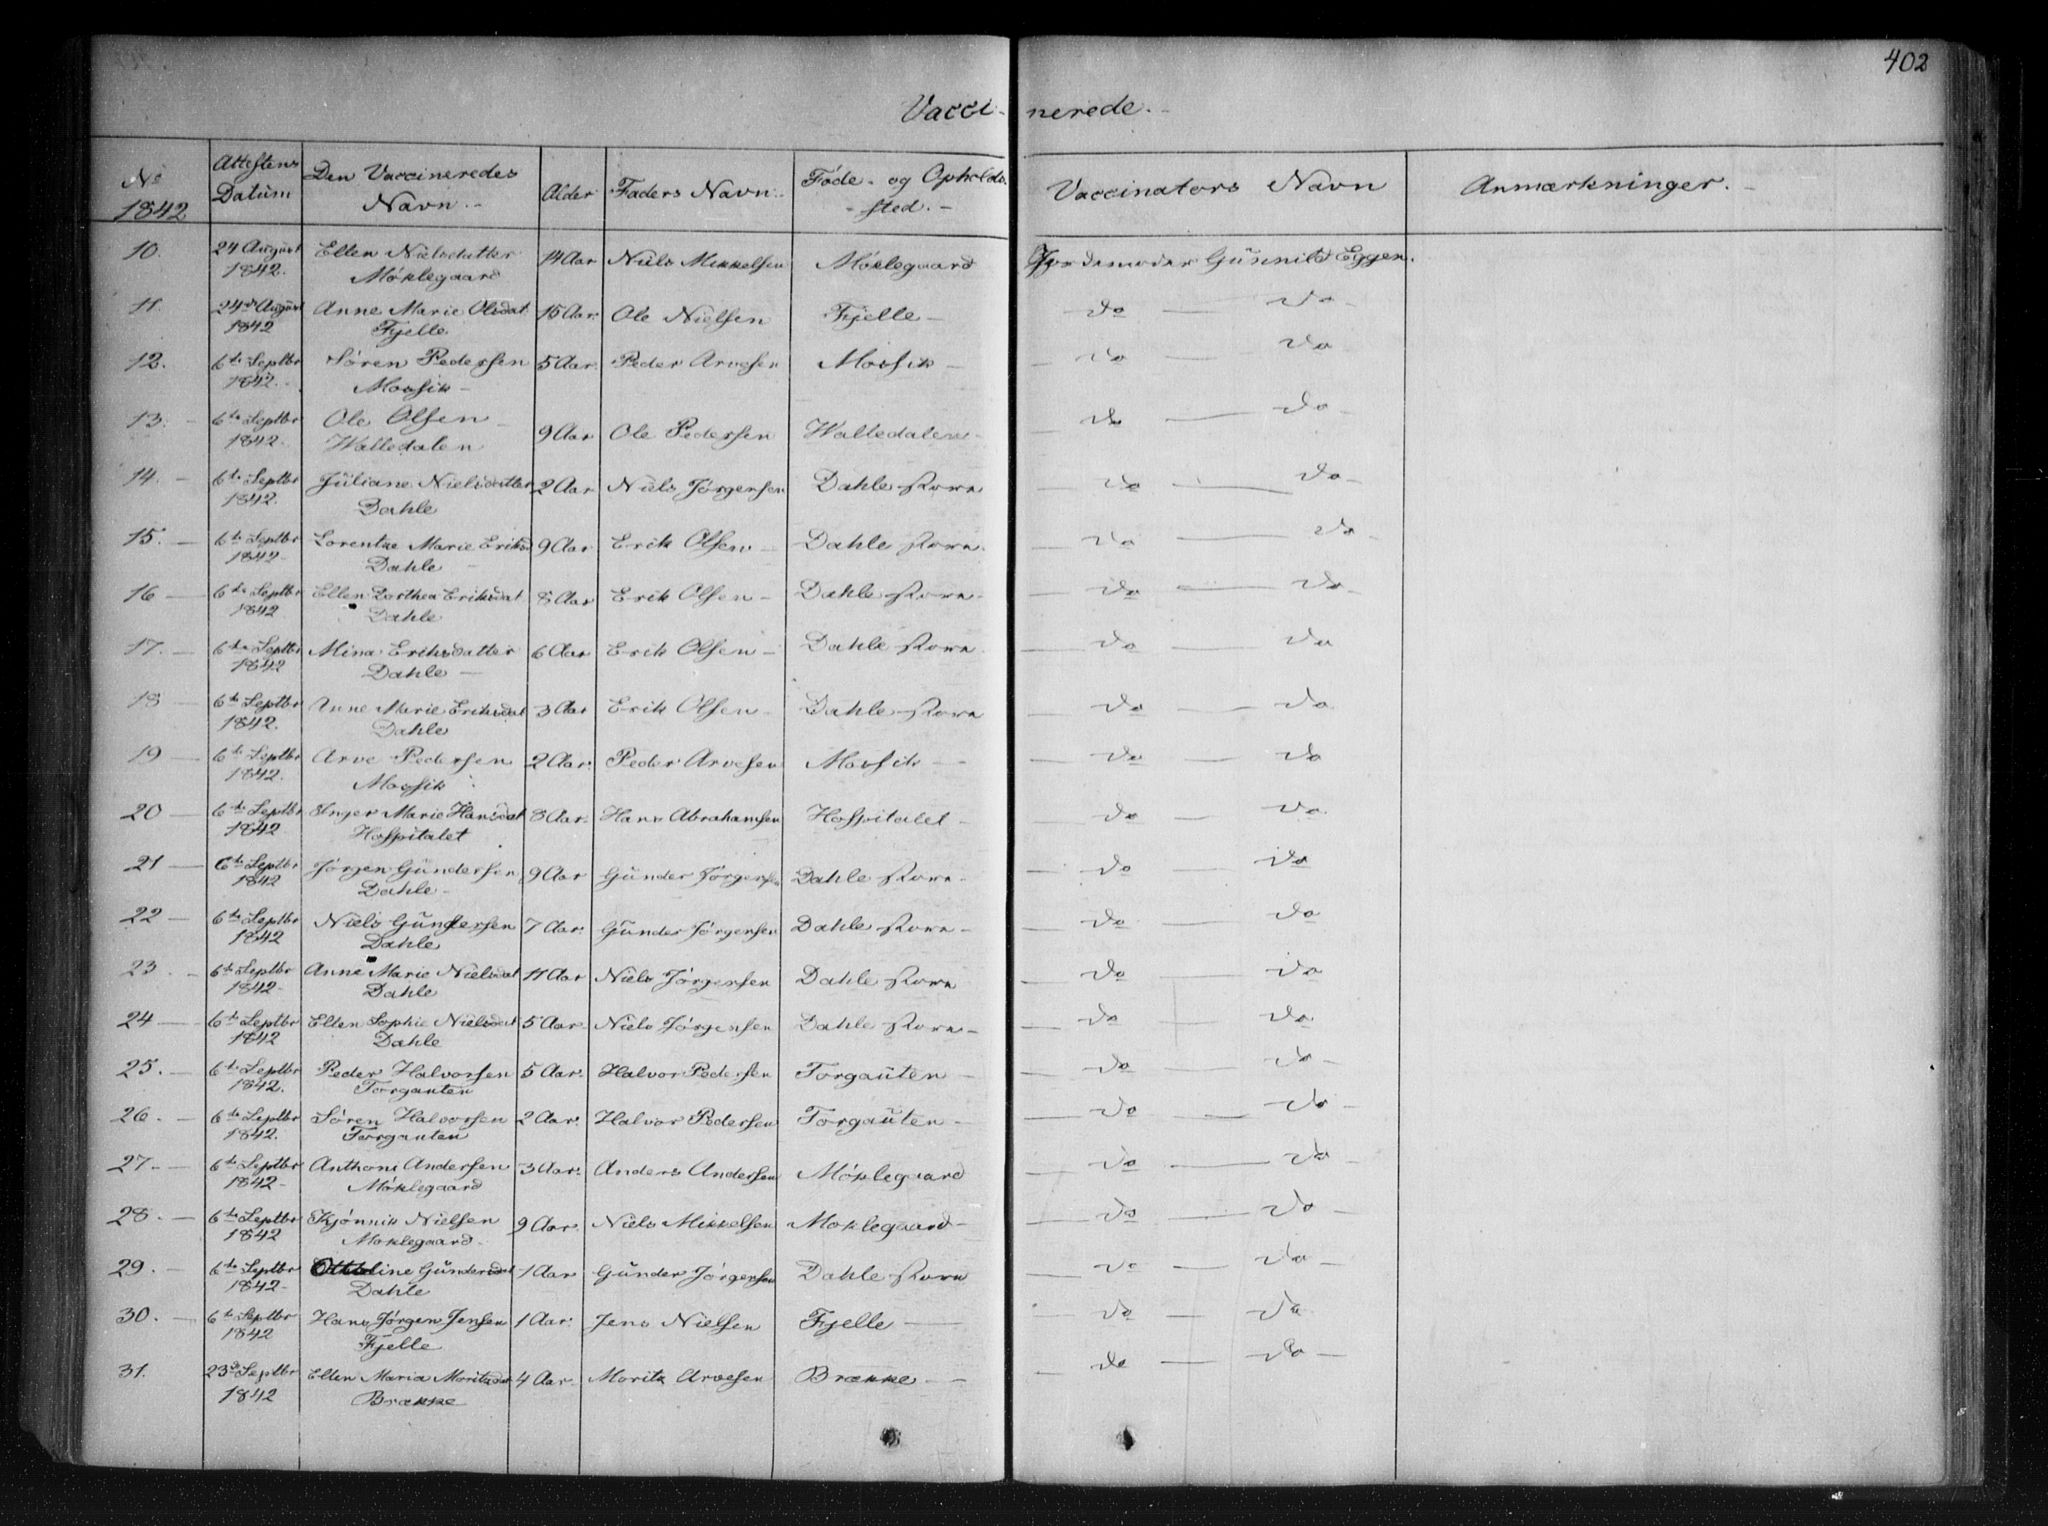 402
Vacci- nerede.-
No 1842 | Attestens Datum | Den Vaccineredes Navn.- | Alder | Faders Navn.- | Føde- og Opholds-sted.- | Vaccinators Navn | Anmærkninger.-
10. | 24 August 1842. | Ellen Nielsdatter Møklegaard | 14 Aar | Niels Mikkelsen | Møklegaard | Jordemoder Gunnild Eggen.
11. | 24de August 1842 | Anne Marie Olsdat Fjelle | 15 Aar. | Ole Nielsen | Fjelle- | do — do-
12. | 6te Septbr 1842.- | Søren Pedersen Moosik- | 5 Aar. | Peder Arvesen | Moosik- | do — do
13.- | 6te Septbr 1842. | Ole Olsen Walledalen | 9 Aar | Ole Pedersen | Walledalen- | do — do-
14.- | 6te Septbr 1842. | Juliane Nielsdatter Dahle | 2 Aar | Niels Jørgensen | Dahle store | do — do-
15.- | 6te Septbr 1842- | Lorentze Marie Eriksd Dahle- | 9 Aar | Erik Olsen- | Dahle store. | do — do-
16- | 6te Septbr 1842 | Ellen Dorthea Eriksdat Dahle | 8 Aar | Erik Olsen- | Dahle store- | do — do-
17.- | 6te Septbr 1842 | Mina Eriksdatter Dahle- | 6 Aar | Erik Olsen- | Dahle store | do — do
18- | 6te Septbr 1842. | Anne Marie Eriksdat Dahle | 3 Aar | Erik Olsen- | Dahle store | do — do
19- | 6te Septbr 1842. | Arve Pedersen Moosik | 2 Aar. | Peder Arvesen | Moosik- | do — do
20- | 6te Septbr 1842 | Inger Marie Hansdat Hospitalet | 8 Aar. | Hans Abrahamsen | Hospitalet- | do — do
21- | 6te Septbr 1842 | Jørgen Gundersen Dahle- | 9 Aar | Gunder Jørgensen | Dahle store- | do — do
22- | 6te Septbr 1842 | Niels Gundersen Dahle | 7 Aar. | Gunder Jørgensen | Dahle store- | do — do
23.- | 6te Septbr 1842- | Anne Marie Nielsdat Dahle | 11 Aar | Niels Jørgensen | Dahle store | do — do
24- | 6te Septbr 1842 | Ellen Sophie Nielsdat Dahle | 5 Aar. | Niels Jørgensen | Dahle store- | do — do
25.- | 6te Septbr 1842. | Peder Halvorsen Torgauten | 5 Aar. | Halvor Pedersen | Torgauten- | do — do-
26.- | 6te Septbr 1842. | Søren Halvorsen Torgauten | 2 Aar. | Halvor Pedersen | Torgauten- | do — do-
27.- | 6te Septbr 1842- | Anthoni Andersen Møklegaard | 3 Aar. | Anders Andersen | Møklegaard | do — do-
28.- | 6te Septbr 1842 | Kjønnik Nielsen Moklegaard- | 9 Aar. | Niels Mikkelsen | Moklegaard- | do — do-
29.- | 6te Septbr 1842- | Ottoline Gundersdat Dahle | 1 Aar | Gunder Jørgensen | Dahle store | do — do-
30.- | 6te Septbr 1842 | Hans Jørgen Jensen Fjelle | 1 Aar. | Jens Nielsen | Fjelle- | do — do
31. | 23de Septbr 1842 | Ellen Maria Moritzdat Brække | 4 Aar. | Moritz Arvesen | Brække- | do — do-